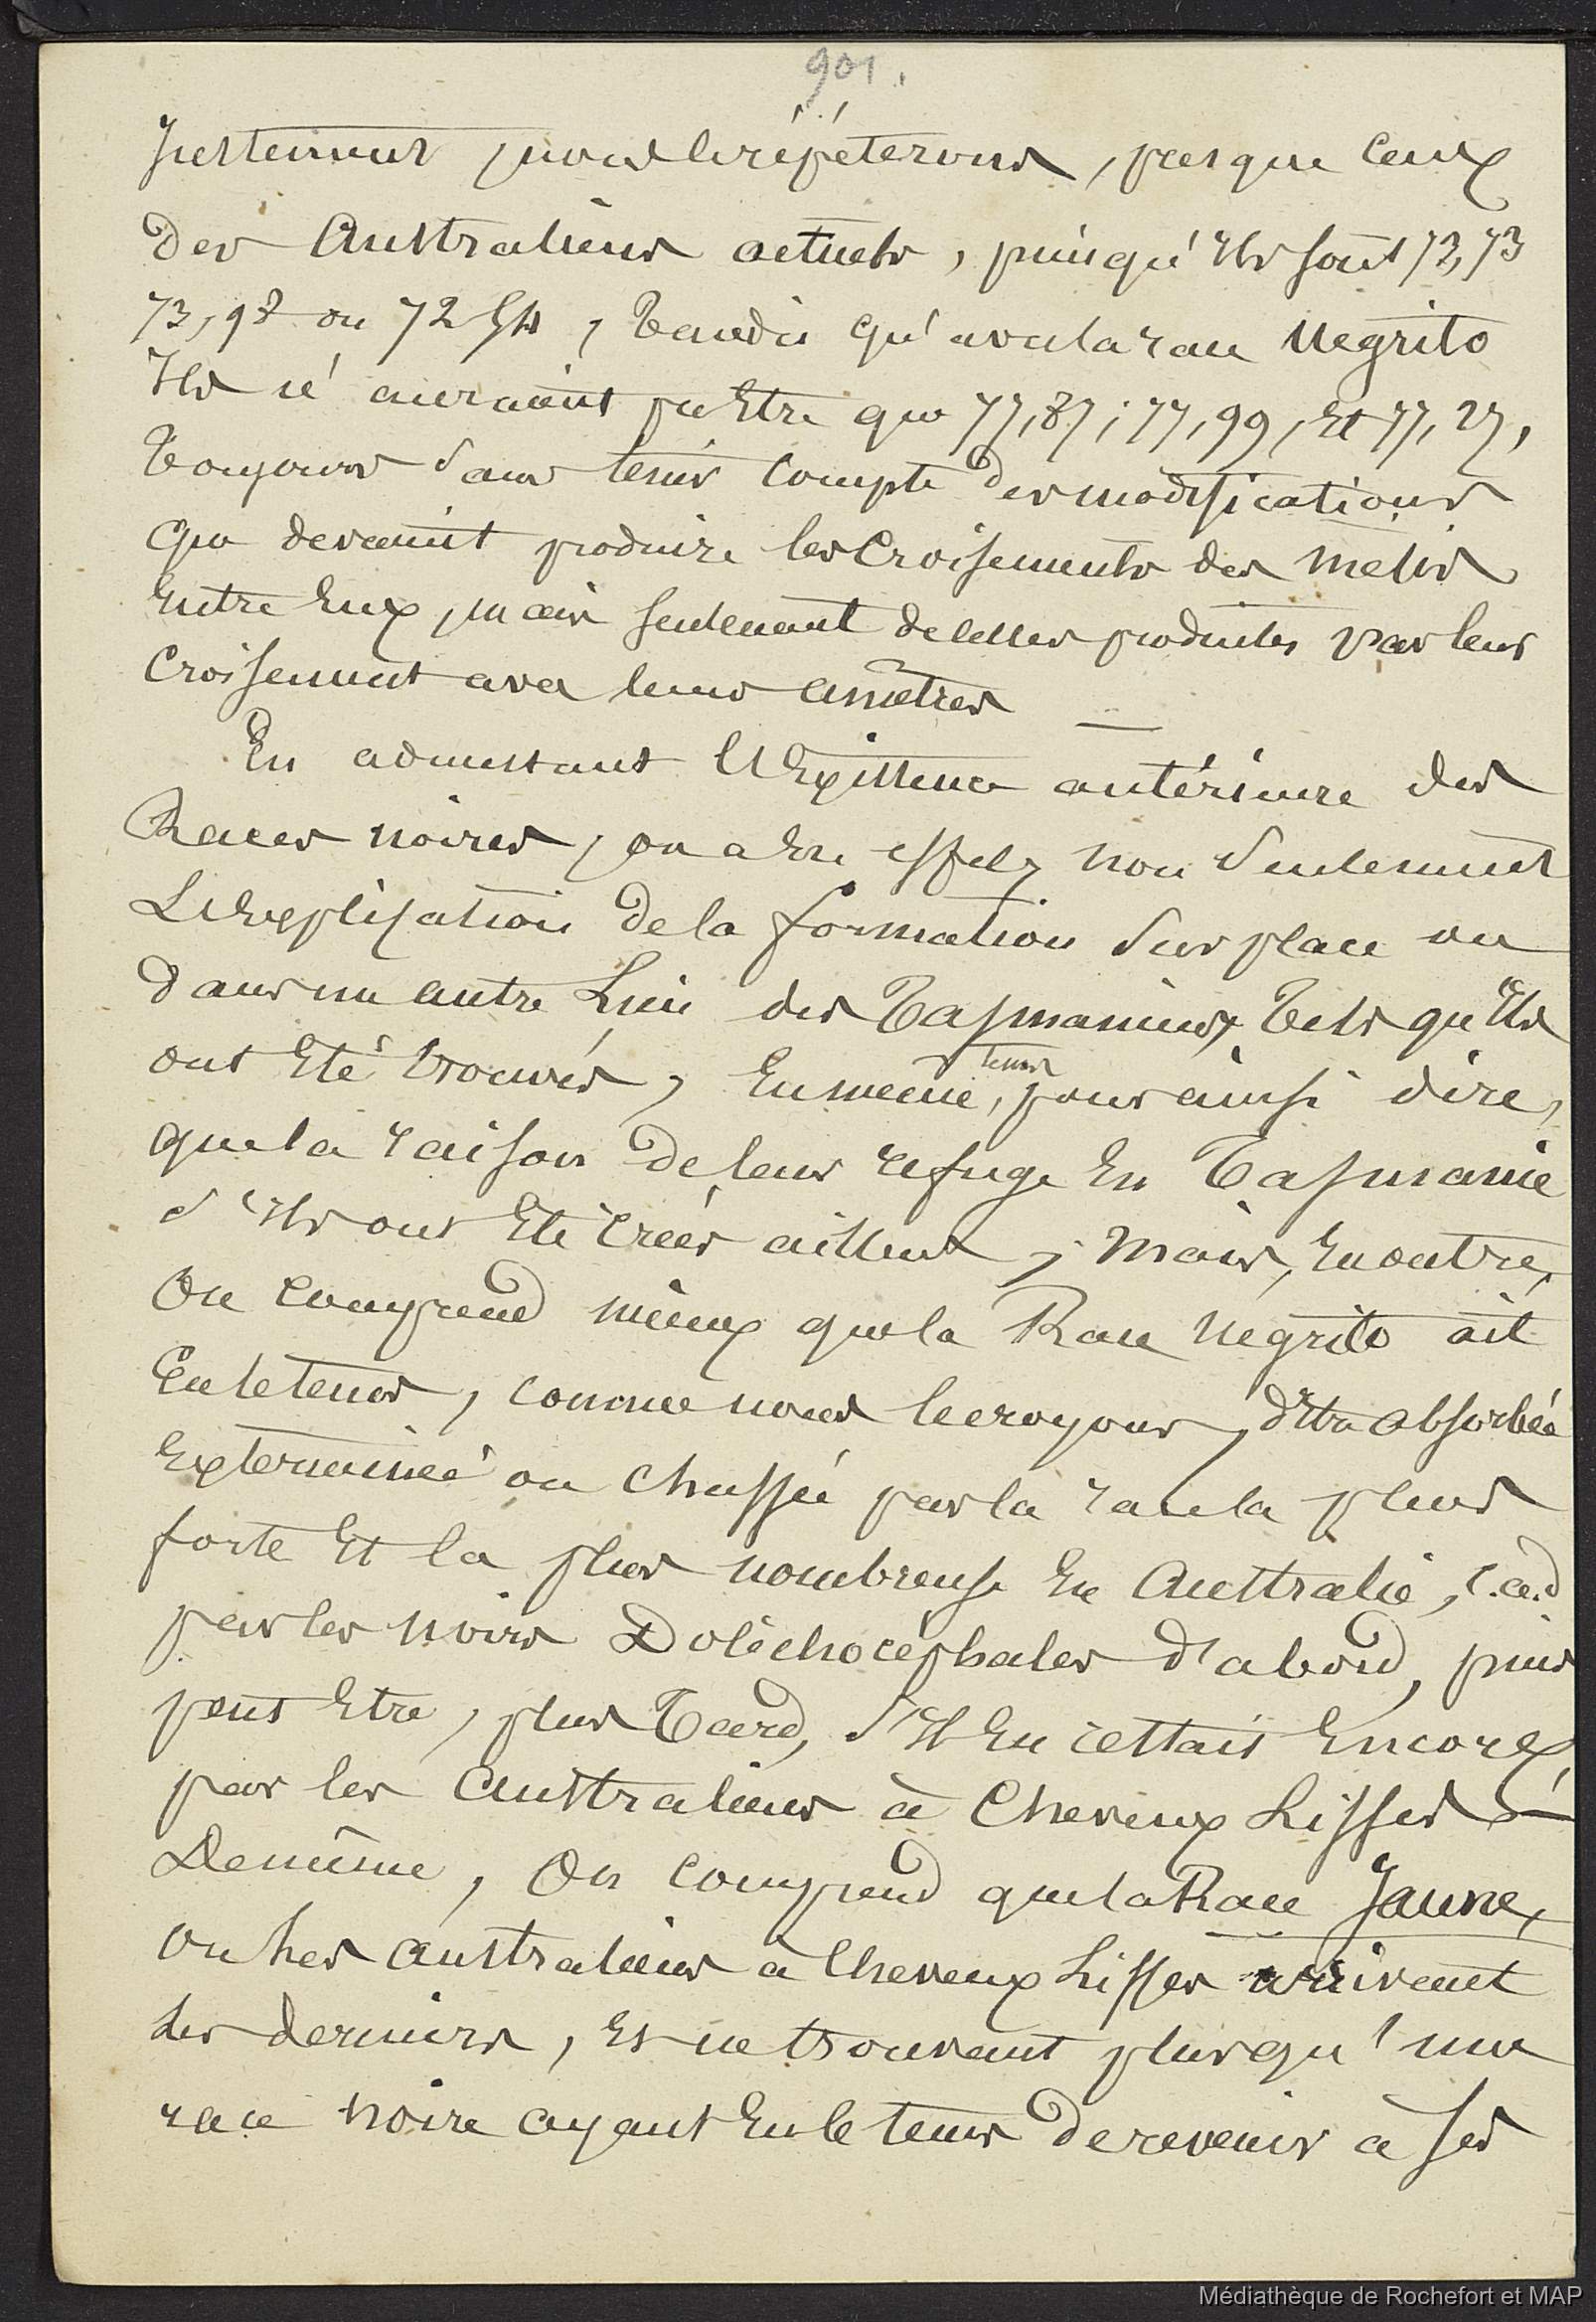 901.
Justement, nous le répéterons, presque ceux
des Australiens actuels, puisqu'ils sont 73,73
73,98 ou 72,54, tandis qu'avec la race Negrito
ils n'auraient pu être que 77,87; 77,99, et 77,27,
toujours sans tenir compte des modifications
que devaient produire les croisements des métis
entre eux, mais seulement de celles produites par leur
croisement avec leurs ancêtres —
En admettant l'existence antérieure des
Races noires, on a en effet, non seulement
L'explication de la formation sur place ou
dans un autre Lieu des Tasmaniens, tels qu'ils
ont été trouvés, en même temps, pour ainsi dire,
que la raison de leur refuge en Tasmanie
s'ils ont été créés ailleurs; mais, en outre,
On comprend mieux que la Race Negrito ait
eu le tems, comme nous le croyons, d'être absorbée
exterminée ou chassée par la race la plus
forte et la plus nombreuse en Australie, c.a.d
par les noirs Dolichocéphales d'abord, puis
peut être, plus tard, s'il en restait encore,
par les Australiens à Cheveux Lisses —
De même, On comprend que la Race Jaune,
ou Les Australiens à Cheveux Lisses arrivent
les derniers, et ne trouvent plus qu'une
race noire ayant eu le tems de revenir à ses
Médiathèque de Rochefort et MAP